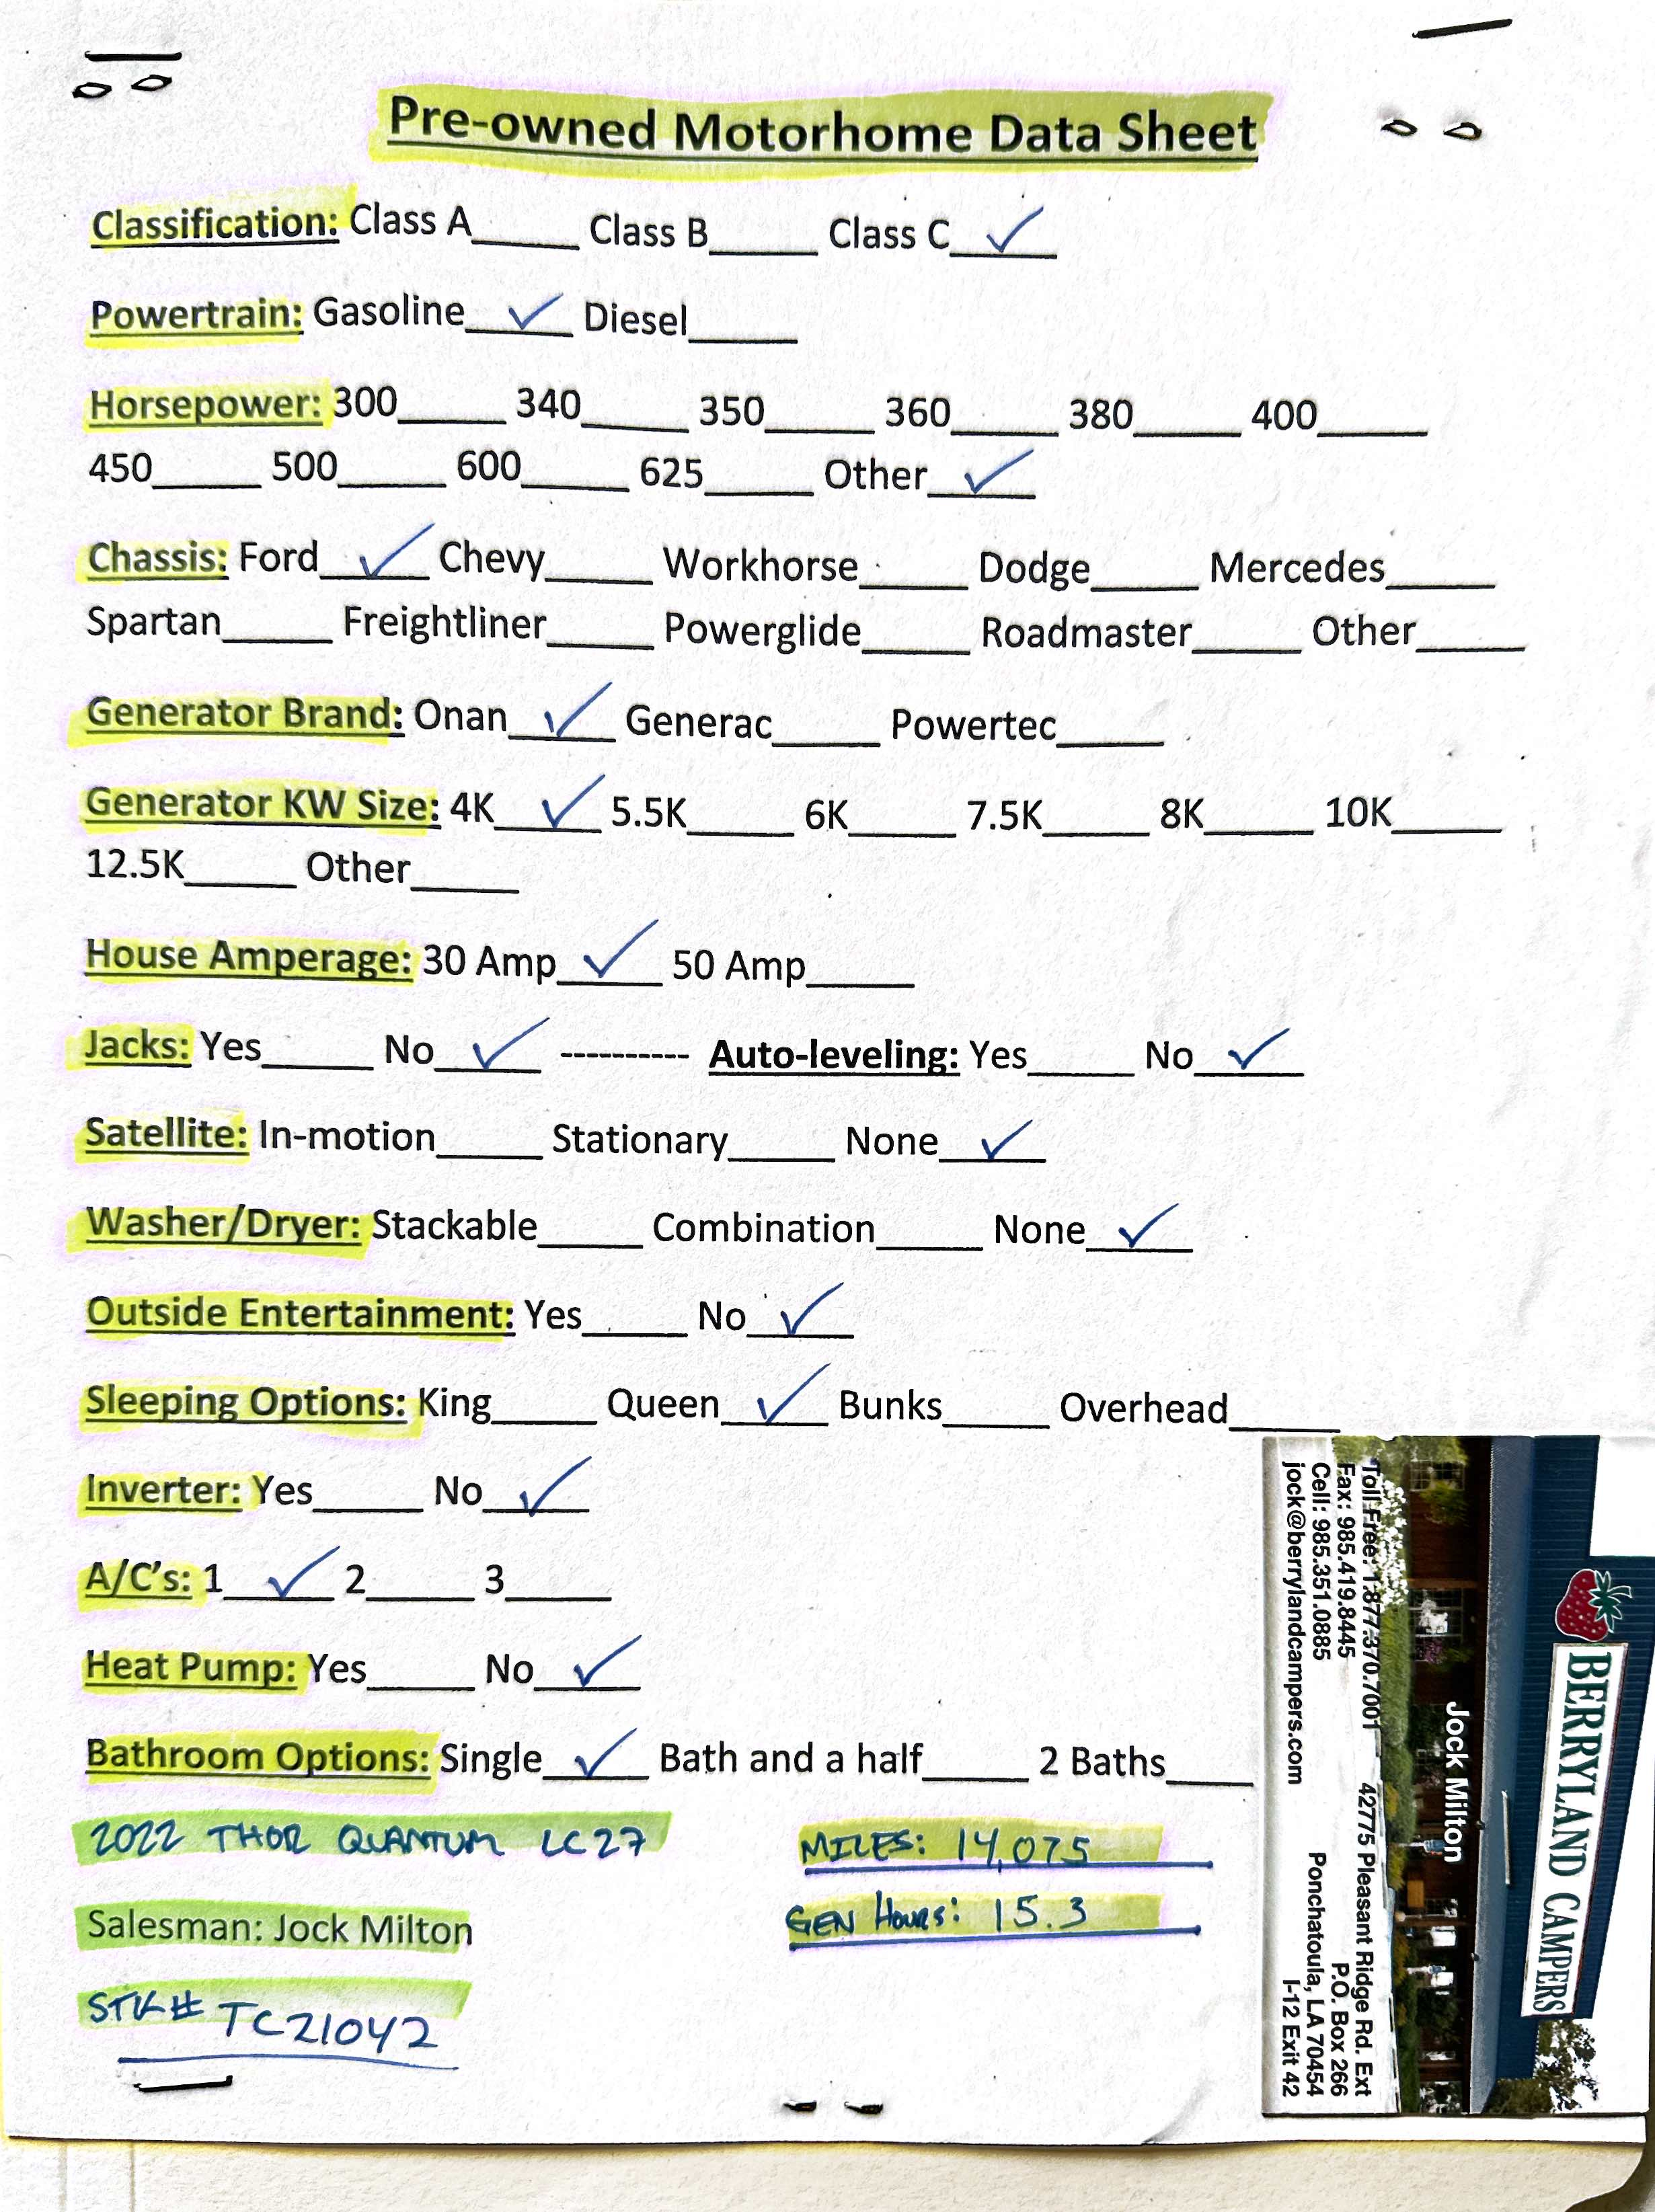 Pre-owned Motorhome Data Sheet
Classification: Class A_____ Class B_____ Class C__✓__
Powertrain: Gasoline__✓__ Diesel_____
Horsepower: 300_____ 340_____ 350_____ 360_____ 380_____ 400_____
450_____ 500_____ 600_____ 625_____ Other__✓__
Chassis: Ford__✓__ Chevy_____ Workhorse_____ Dodge_____ Mercedes_____
Spartan_____ Freightliner_____ Powerglide_____ Roadmaster_____ Other_____
Generator Brand: Onan__✓__ Generac_____ Powertec_____
Generator KW Size: 4K__✓__ 5.5K_____ 6K_____ 7.5K_____ 8K_____ 10K_____
12.5K_____ Other_____
House Amperage: 30 Amp__✓__ 50 Amp_____
Jacks: Yes_____ No__✓__ ---------- Auto-leveling: Yes_____ No__✓__
Satellite: In-motion_____ Stationary_____ None__✓__
Washer/Dryer: Stackable_____ Combination_____ None__✓__
Outside Entertainment: Yes_____ No__✓__
Sleeping Options: King_____ Queen__✓__ Bunks_____ Overhead_____
Inverter: Yes_____ No__✓__
A/C's: 1__✓__ 2_____ 3_____
Heat Pump: Yes_____ No__✓__
Bathroom Options: Single__✓__ Bath and a half_____ 2 Baths_____
2022 THOR QUANTUM LC27
MILES: 14,075
Salesman: Jock Milton
GEN HOURS: 15.3
STK# TC21042
BERRYLAND CAMPERS
Jock Milton
Toll Free: 1.877.370.7001 42775 Pleasant Ridge Rd. Ext
Fax: 985.419.8445 P.O. Box 266
Cell: 985.351.0885 Ponchatoula, LA 70454
jock@berrylandcampers.com I-12 Exit 42